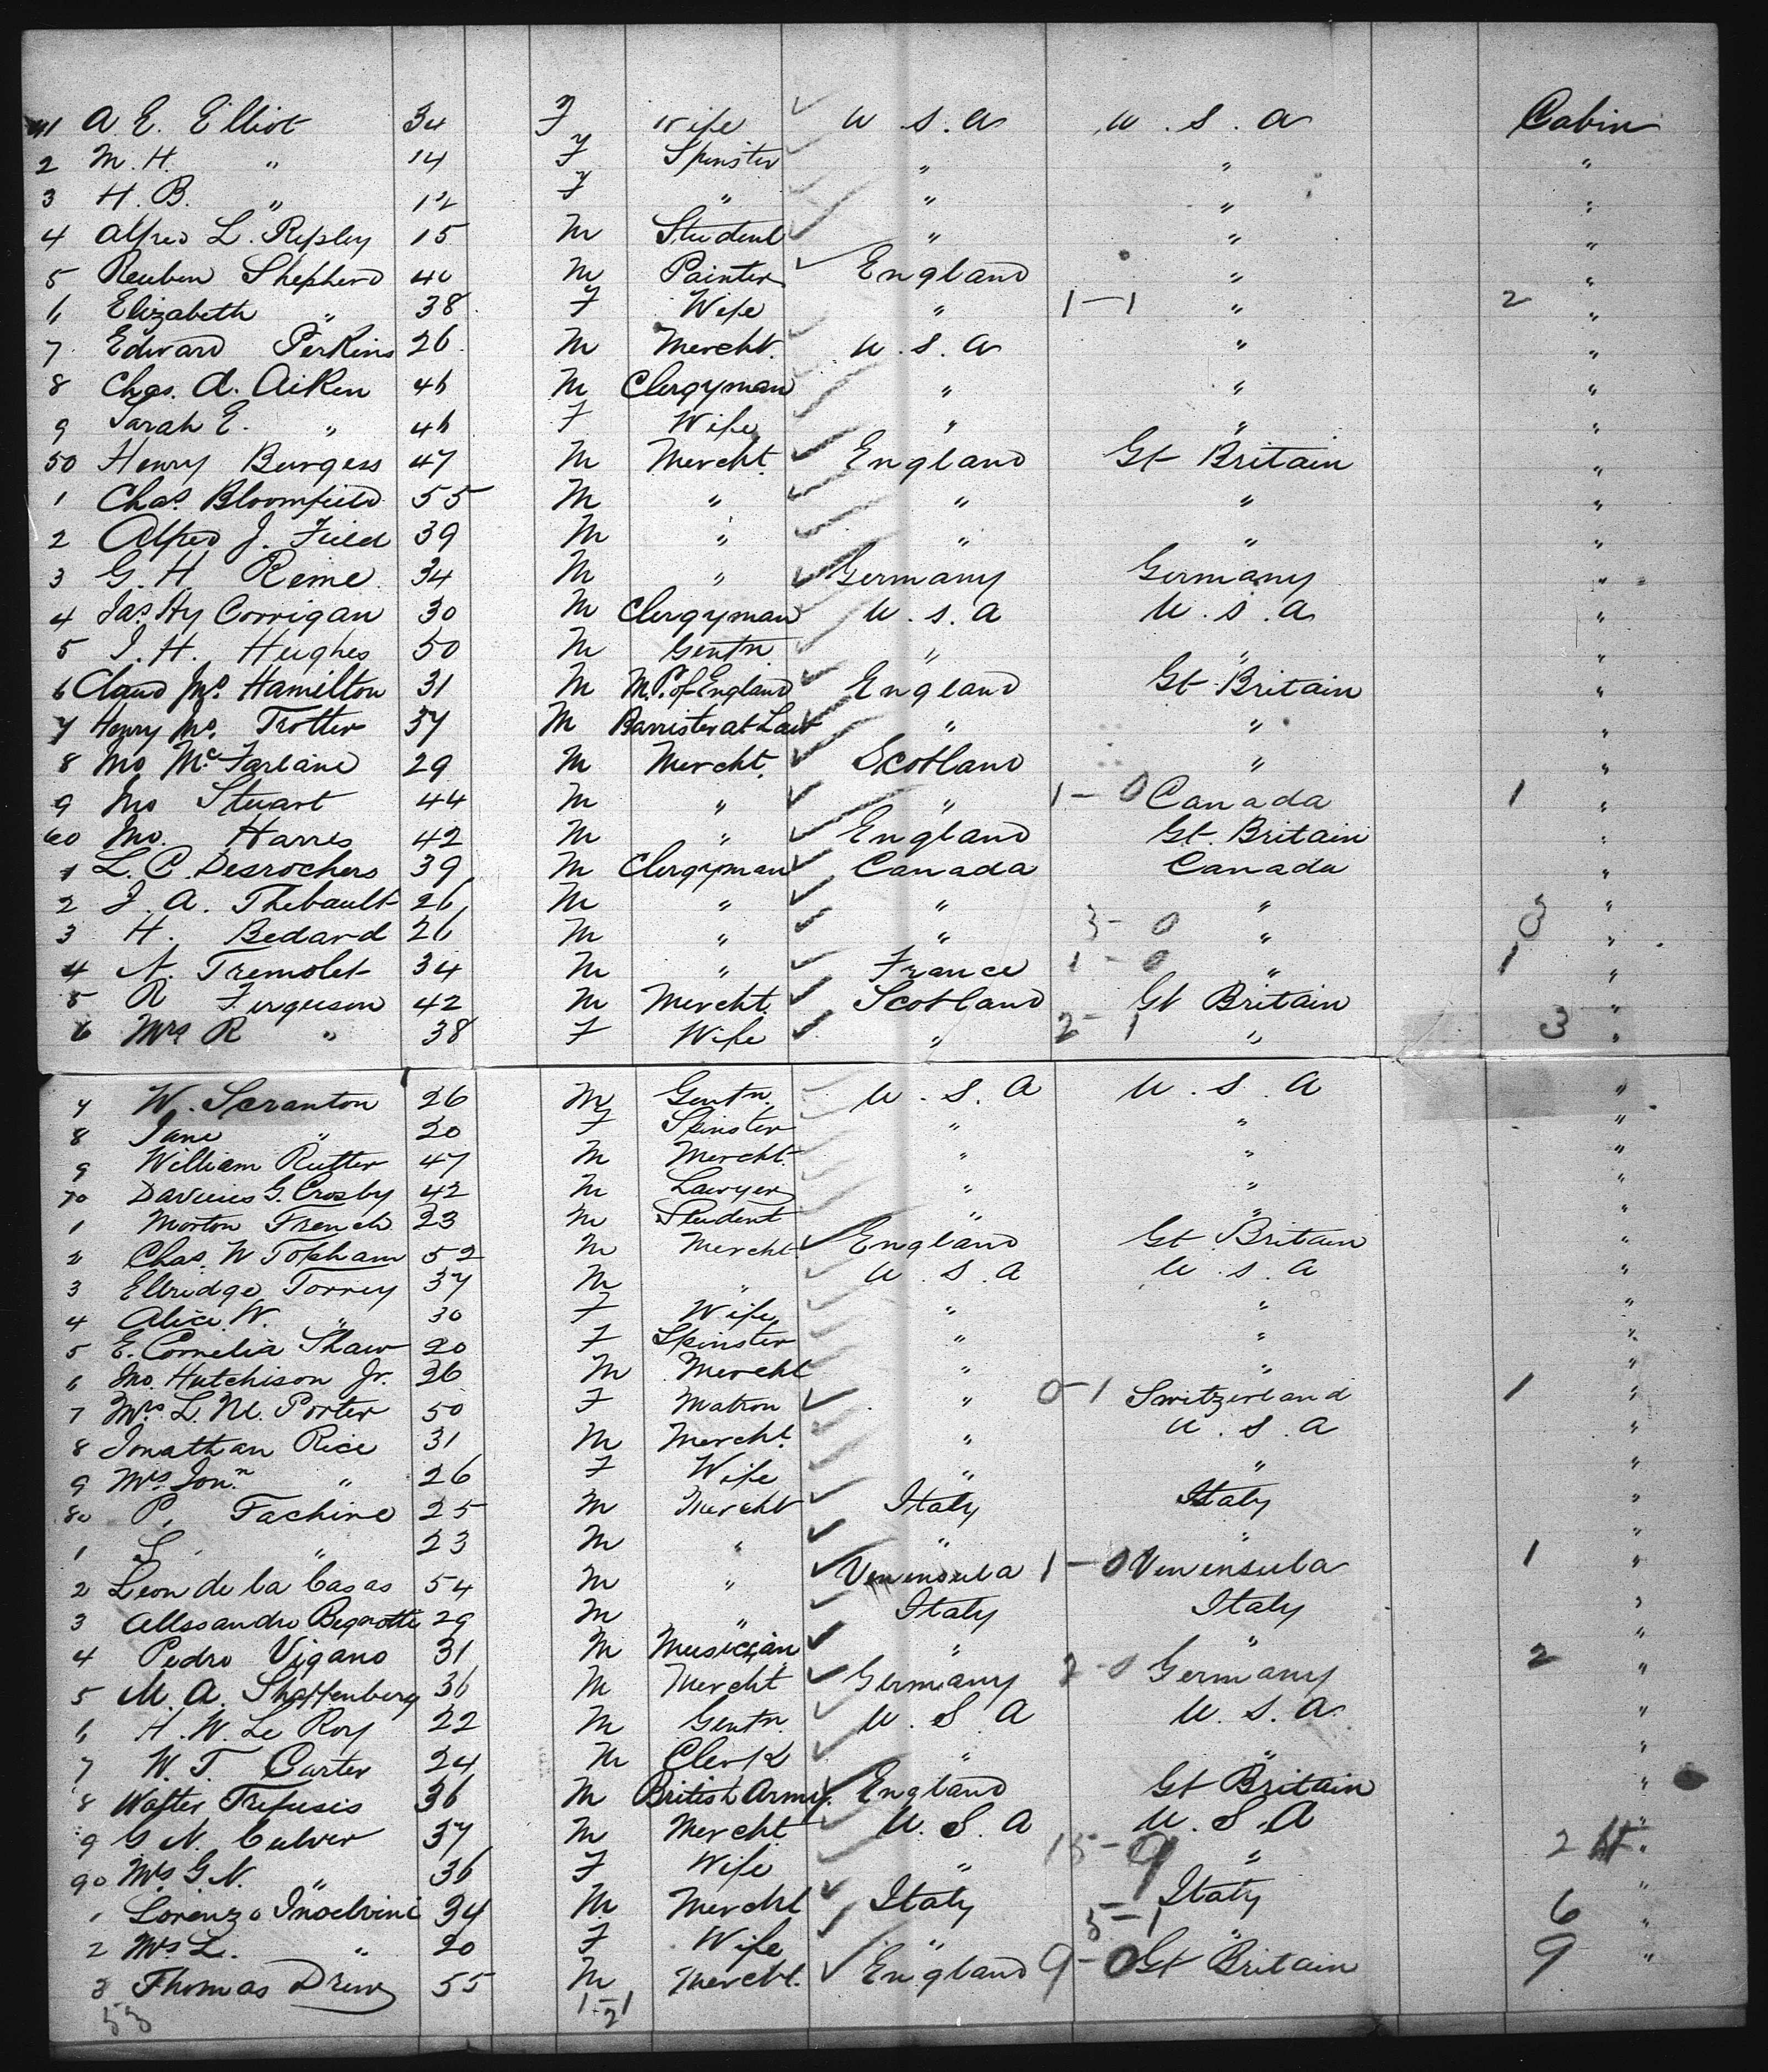 41 A. E. Elliot 34 F Wife U. S. A U. S. A Cabin
2 M. H. " 14 F Spinster " " "
3 H. B. " 12 F " " " "
4 Alfred L. Ripley 15 M Student " " "
5 Reuben Shepherd 40 M Painter England " "
6 Elizabeth " 38 F Wife " 1-1 " 2 "
7 Edward Perkins 26 M Mercht. U. S. A " "
8 Chas. A. Aiken 46 M Clergyman " " "
9 Sarah E. " 46 F Wife " " "
50 Henry Burgess 47 M Mercht. England Gt Britain "
1 Chas. Bloomfield 55 M " " " "
2 Alfred J. Field 39 M " " " "
3 G. H Reime 34 M " Germany Germany "
4 Jas. Hy Corrigan 30 M Clergyman U. S. A U. S. A "
5 J. H. Hughes 50 M Gentn " " "
6 Claud Jno. Hamilton 31 M M.P. of England England Gt Britain "
7 Henry Jno. Trotter 37 M Barrister at Law " " "
8 Jno McFarlane 29 M Mercht. Scotland " "
9 Jno Stuart 44 M " " 1-0 Canada 1 "
60 Jno. Harres 42 M " England Gt. Britain "
1 L. C. Desrochers 39 M Clergyman Canada Canada "
2 J. A. Thebault 26 M " " " "
3 H. Bedard 26 M " " 3-0 " 3 "
4 A. Tremolet 34 M " France 1-0 " 1 "
5 R Ferguson 42 M Mercht. Scotland Gt Britain "
6 Mrs R " 38 F Wife " 2-1 " 3 "
7 W. Scranton 26 M Gentn. U. S. A U. S. A "
8 Jane " 20 F Spinster " " "
9 William Rutter 47 M Mercht. " " "
70 Darius G. Crosby 42 M Lawyer " " "
1 Morton French 23 M Student " " "
2 Chas. W Topham 52 M Mercht England Gt Britain "
3 Elbridge Torrey 37 M " U. S. A U. S. A "
4 Alice W. " 30 F Wife " " "
5 E. Cornelia Shaw 20 F Spinster " " "
6 Jno. Hutchison Jr. 26 M Mercht " " "
7 Mrs. L. M. Porter 50 F Matron " 0-1 Switzerland 1 "
8 Jonathan Rice 31 M Mercht. " U. S. A "
9 Mrs. Jonn " 26 F Wife " " "
80 P. Fachire 25 M Mercht Italy Italy "
1 S. " 23 M " " " "
2 Leon de la Casas 54 M " Venensula 1-0 Venensula 1 "
3 Allssandro Begnotti 29 M " Italy Italy "
4 Pedro Vigano 31 M Musician " " "
5 M. A. Shaffenberg 36 M Mercht Germany 2-0 Germany 2 "
6 H. W. Le Roy 22 M Gentn. U. S A U. S. A "
7 W. T. Carter 24 M Clerk " " "
8 Walter Trefusis 36 M British Army. England Gt Britain "
9 G N. Culver 37 M Mercht. U. S. A U. S A "
90 Mrs G N. " 36 F Wife " 15-9 " 24 "
1 Lorenzo Inoelvini 34 M Mercht Italy Italy "
2 Mrs L. " 20 F Wife " 5-1 " 6 "
3 Thomas Drew 55 M Mercht. England 9-0 Gt Britain 9 "
53 1-21